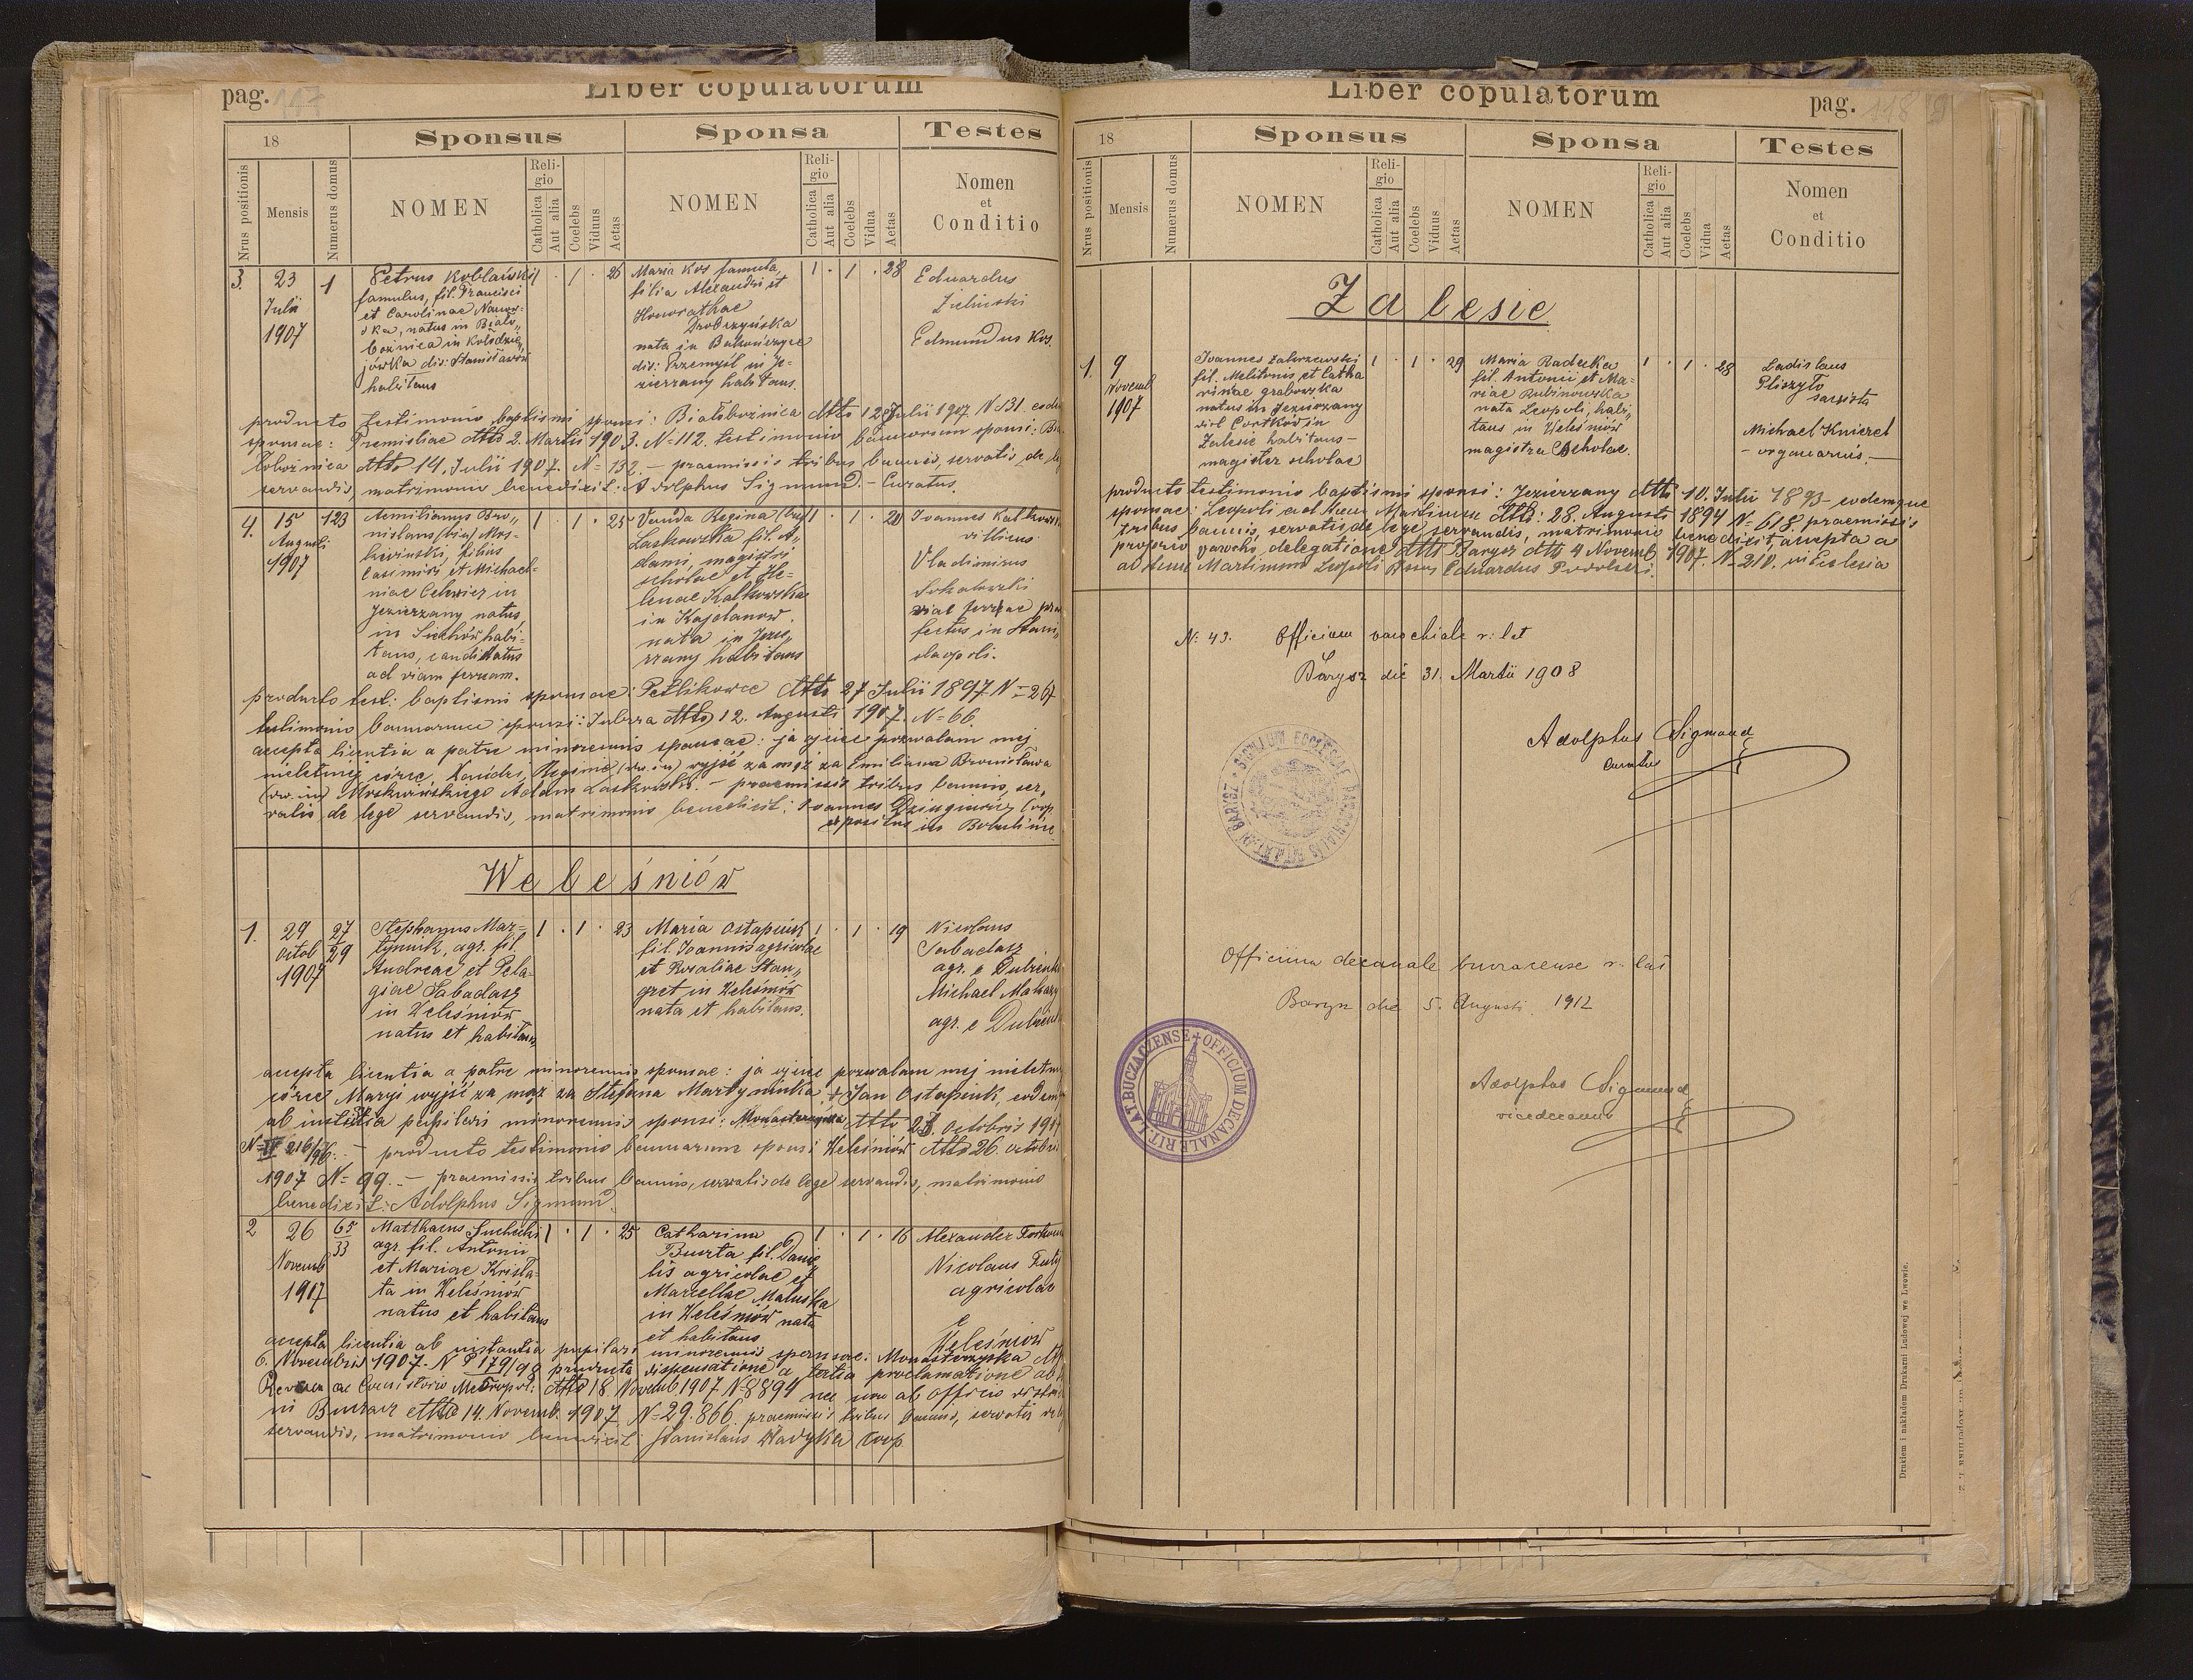 pag. 117
Liber copulatorum
18
Sponsus
Sponsa
Testes
Nrus positionis
Mensis
Numerus domus
NOMEN
Religio
Catholica
Aut alia
Coelebs
Viduus
Aetas
NOMEN
Religio
Catholica
Aut alia
Coelebs
Vidua
Aetas
Nomen
et
Conditio
3. 23 Julii 1907 1
Petrus Koblański
famulus, fil. Francisci
et Carolinae Nawor=
ska, natus in Biało„
boźnica in Kołodzie„
jówka dis: Stanisławów
habitans
1 · 1 · 26
Maria Kos famula,
filia Alexandri et
Honorathae
Drobczyńska
nata in Bakończyce
dis: Przemyśl in Je=
zierzany habitans.
1 · 1 · 28
Eduardus
Zieliński
Edmundus Kos.
producto testimonio baptismi sponsi: Białobożnica dtto 12 Julii 1907 N 131
sponsae: Premisliae dtto 2. Martii 1903. N=112. testimonio bannorum sponsi:
łobożnica dtto 14. Julii 1907. N= 132. – praemissis tribus bannis, servatis de
servandis, matrimonio benedixit: Adolphus Sigmund. – Curatus.
4. 15 Augusti 1907 123
Aemilianus Bro„
nislaus (bin) Mos=
kwiński, filius
Casimiri et Michael=
inae Cehwicz in
Jezierzany natus
in Sichów habi=
tans, candidatus
ad viam ferream.
1 · 1 · 25
Vanda Regina (bin)
Laskowska fil. A„
dami, magistri
scholae et He=
lenae Kalkowska
in Kajetanow.
nata in Jezie„
rzany habitans
1 · 1 · 20
Joannes
villicus
Vladimirus
Sokołowski
viae ferreae
fectus in Stani„
slaopoli.
producto test: baptismi sponsae: Petlikowce dtto 27 Julii 1897 N=267
testimonio bannorum sponsi: dtto 12. Augusti 1907. N=66.
accepta licentia a patre minorennis sponsae: ja ojciec pozwalam mej
nieletniej córce, Wandzi, Reginie (dw. im) wyjść za mąż za Emiliana Bronisława
(dw. im) Moskwińskiego Adam Laskowski. – praemissis tribus bannis, ser„
vatis de lege servandis, matrimonio benedixit: Joannes
expositus in Bobulińce
Weleśniów
1. 29 octob 1907 27 29
Stephanus Mar=
tyniuk, agr. fil.
Andreae et Pela
giae Sabadasz
in Weleśniów
natus et habitans
1 · 1 · 23
Maria Ostapiuk
fil. Joannis agricolae
et Rosaliae Stan„
gret in Weleśniów
nata et habitans.
1 · 1 · 19
Nicolaus
Sabadasz
agr. e
Michael
agr. e
accepta licentia a patre minorennis sponsae: ja ojciec pozwalam mej
córce Maryi wyjść za mąż za Stefana Martyniuka + Jan Ostapiuk,
ab instantia pupilari minorennis sponsi: Monasterzyska dtto 23. octobris
N= IV 216/96. – producto testimonio bannorum sponsi Weleśniów dtto 26.
1907 N= 99. – praemissis tribus bannis, servatis de lege servandis, matrimonio
benedixit: Adolphus Sigmund.
2 26 Novemb 1907 65 33
Matthaeus Suchecki
agr. fil. Antonii
et Mariae Krisla=
ta in Weleśniów
natus et habitans
1 · 1 · 25
Catharina
Buszta fil. Danie
lis agricolae et
Marcellae Maluska
in Weleśniów nata
et habitans
1 · 1 · 16
Alexander
Nicolaus
agricolae
e
Weleśniow
accepta licentia ab instantia pupilari minorennis sponsae: Monasterzyska
6. Novembris 1907. N P 179/99 producta dispensatione a tertia proclamatione ab
Reverenac Consistorio Metropol: dtto 18 Novemb. 1907 N 8894 nec non ab officio
in Buczacz dtto 14. Novemb. 1907 N=29.866. praemissis tribus bannis, servatis
servandis, matrimonio benedixit Stanislaus Wadyka Coop
Liber copulatorum
pag. 118
18
Sponsus
Sponsa
Testes
Nrus positionis
Mensis
Numerus domus
NOMEN
Religio
Catholica
Aut alia
Coelebs
Viduus
Aetas
NOMEN
Religio
Catholica
Aut alia
Coelebs
Vidua
Aetas
Nomen
et
Conditio
Zalesie
1. 9 Novemb 1907
Joannes Zaborzewski
fil. Melitonis et Catha
rinae Grabowska
natus in Jezierzany
dist Czortków in
Zalesie habitans –
magister scholae
1 · 1 · 29
Maria Radecka
fil. Antonii et Ma=
riae Rubinowska
nata Leopoli, habi„
tans in Weleśniów
magistra Scholae.
1 · 1 · 28
Ladislaus
Pliszyło
Michael Knierel
– organarius. –
producto testimonio baptismi sponsi: Jezierzany dtto 10. Julii 1893 – eodemque
sponsae: Leopoli ad Stum Martinum dtto: 28. Augusti 1894 N=618 praemissis
tribus bannis, servatis de lege servandis, matrimonio benedixit, accepta a
proprio parocho delegatione dtto Barysz dtto 4 Novemb 1907. N=210. in Eclesia
ad Stum Martinum Leopoli Eduardus Podolski.
N: 43. Officium parochiale r: lat
Barysz die 31. Martii 1908
Adolphus Sigmund
curatus
SIGILLUM ECCLESIAE PAROCHIALIS RIT. LAT. IN BARYSZ
Officium decanale buczacense r. lat
Barysz die 5. Augusti 1912
Adolphus Sigmund
vicedecanus
OFFICIUM DECANALE RIT. LAT. BUCZACZENSE
Drukiem i nakładem Drukarni Ludowej we Lwowie.